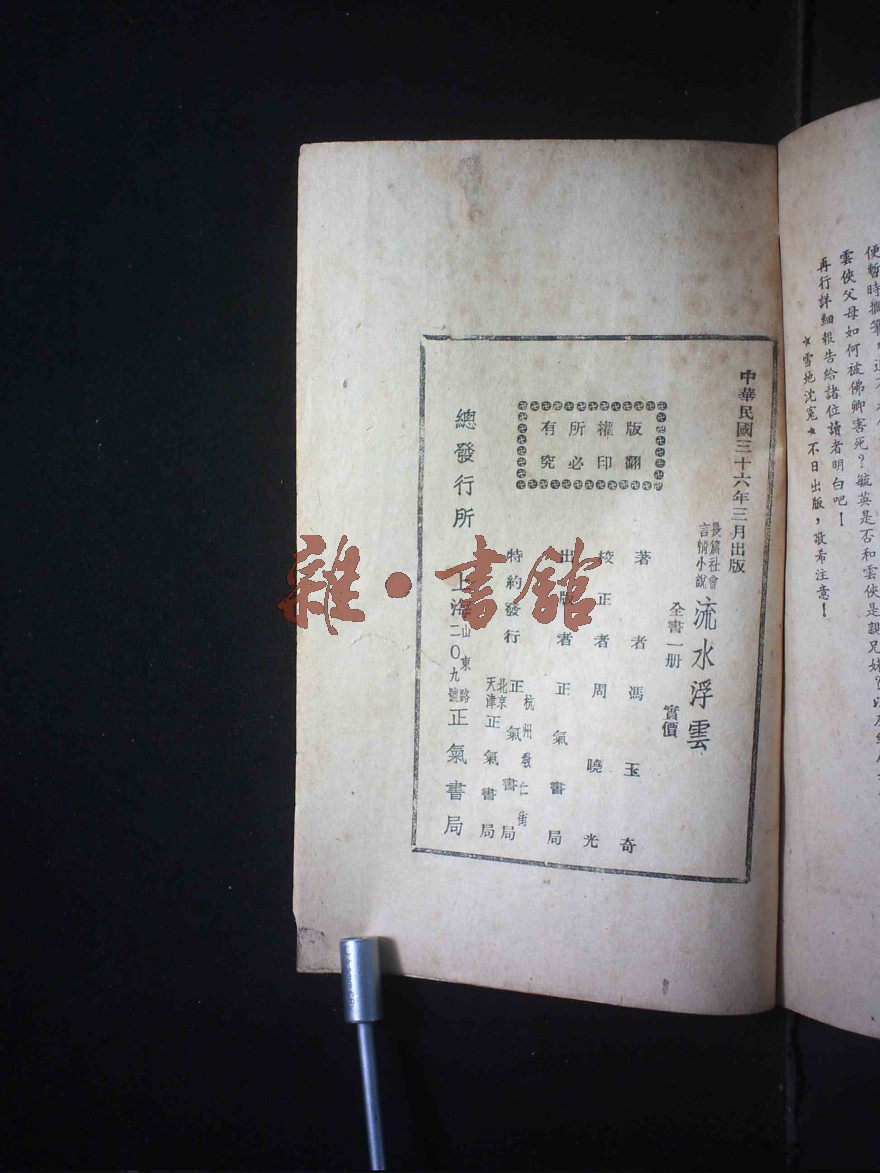 便暫時擱筆，
雲俠父母如何被佛卿害死？毓英是否和雲俠是親兄妹？以及
再行詳細報告給諸位讀者明白吧！
★雪地沈冤★不日出版，敬希注意！
中華民國三十六年三月出版
長篇社會言情小說
流水浮雲
全書一册 實價
版權所有
翻印必究
著者馮玉奇
校正者周曉光
出版者正氣書局
特約發行
杭州
仁街
正氣書局
北京
天津
正氣書局
總發行所
上海山東路二〇九號正氣書局
雜·書館